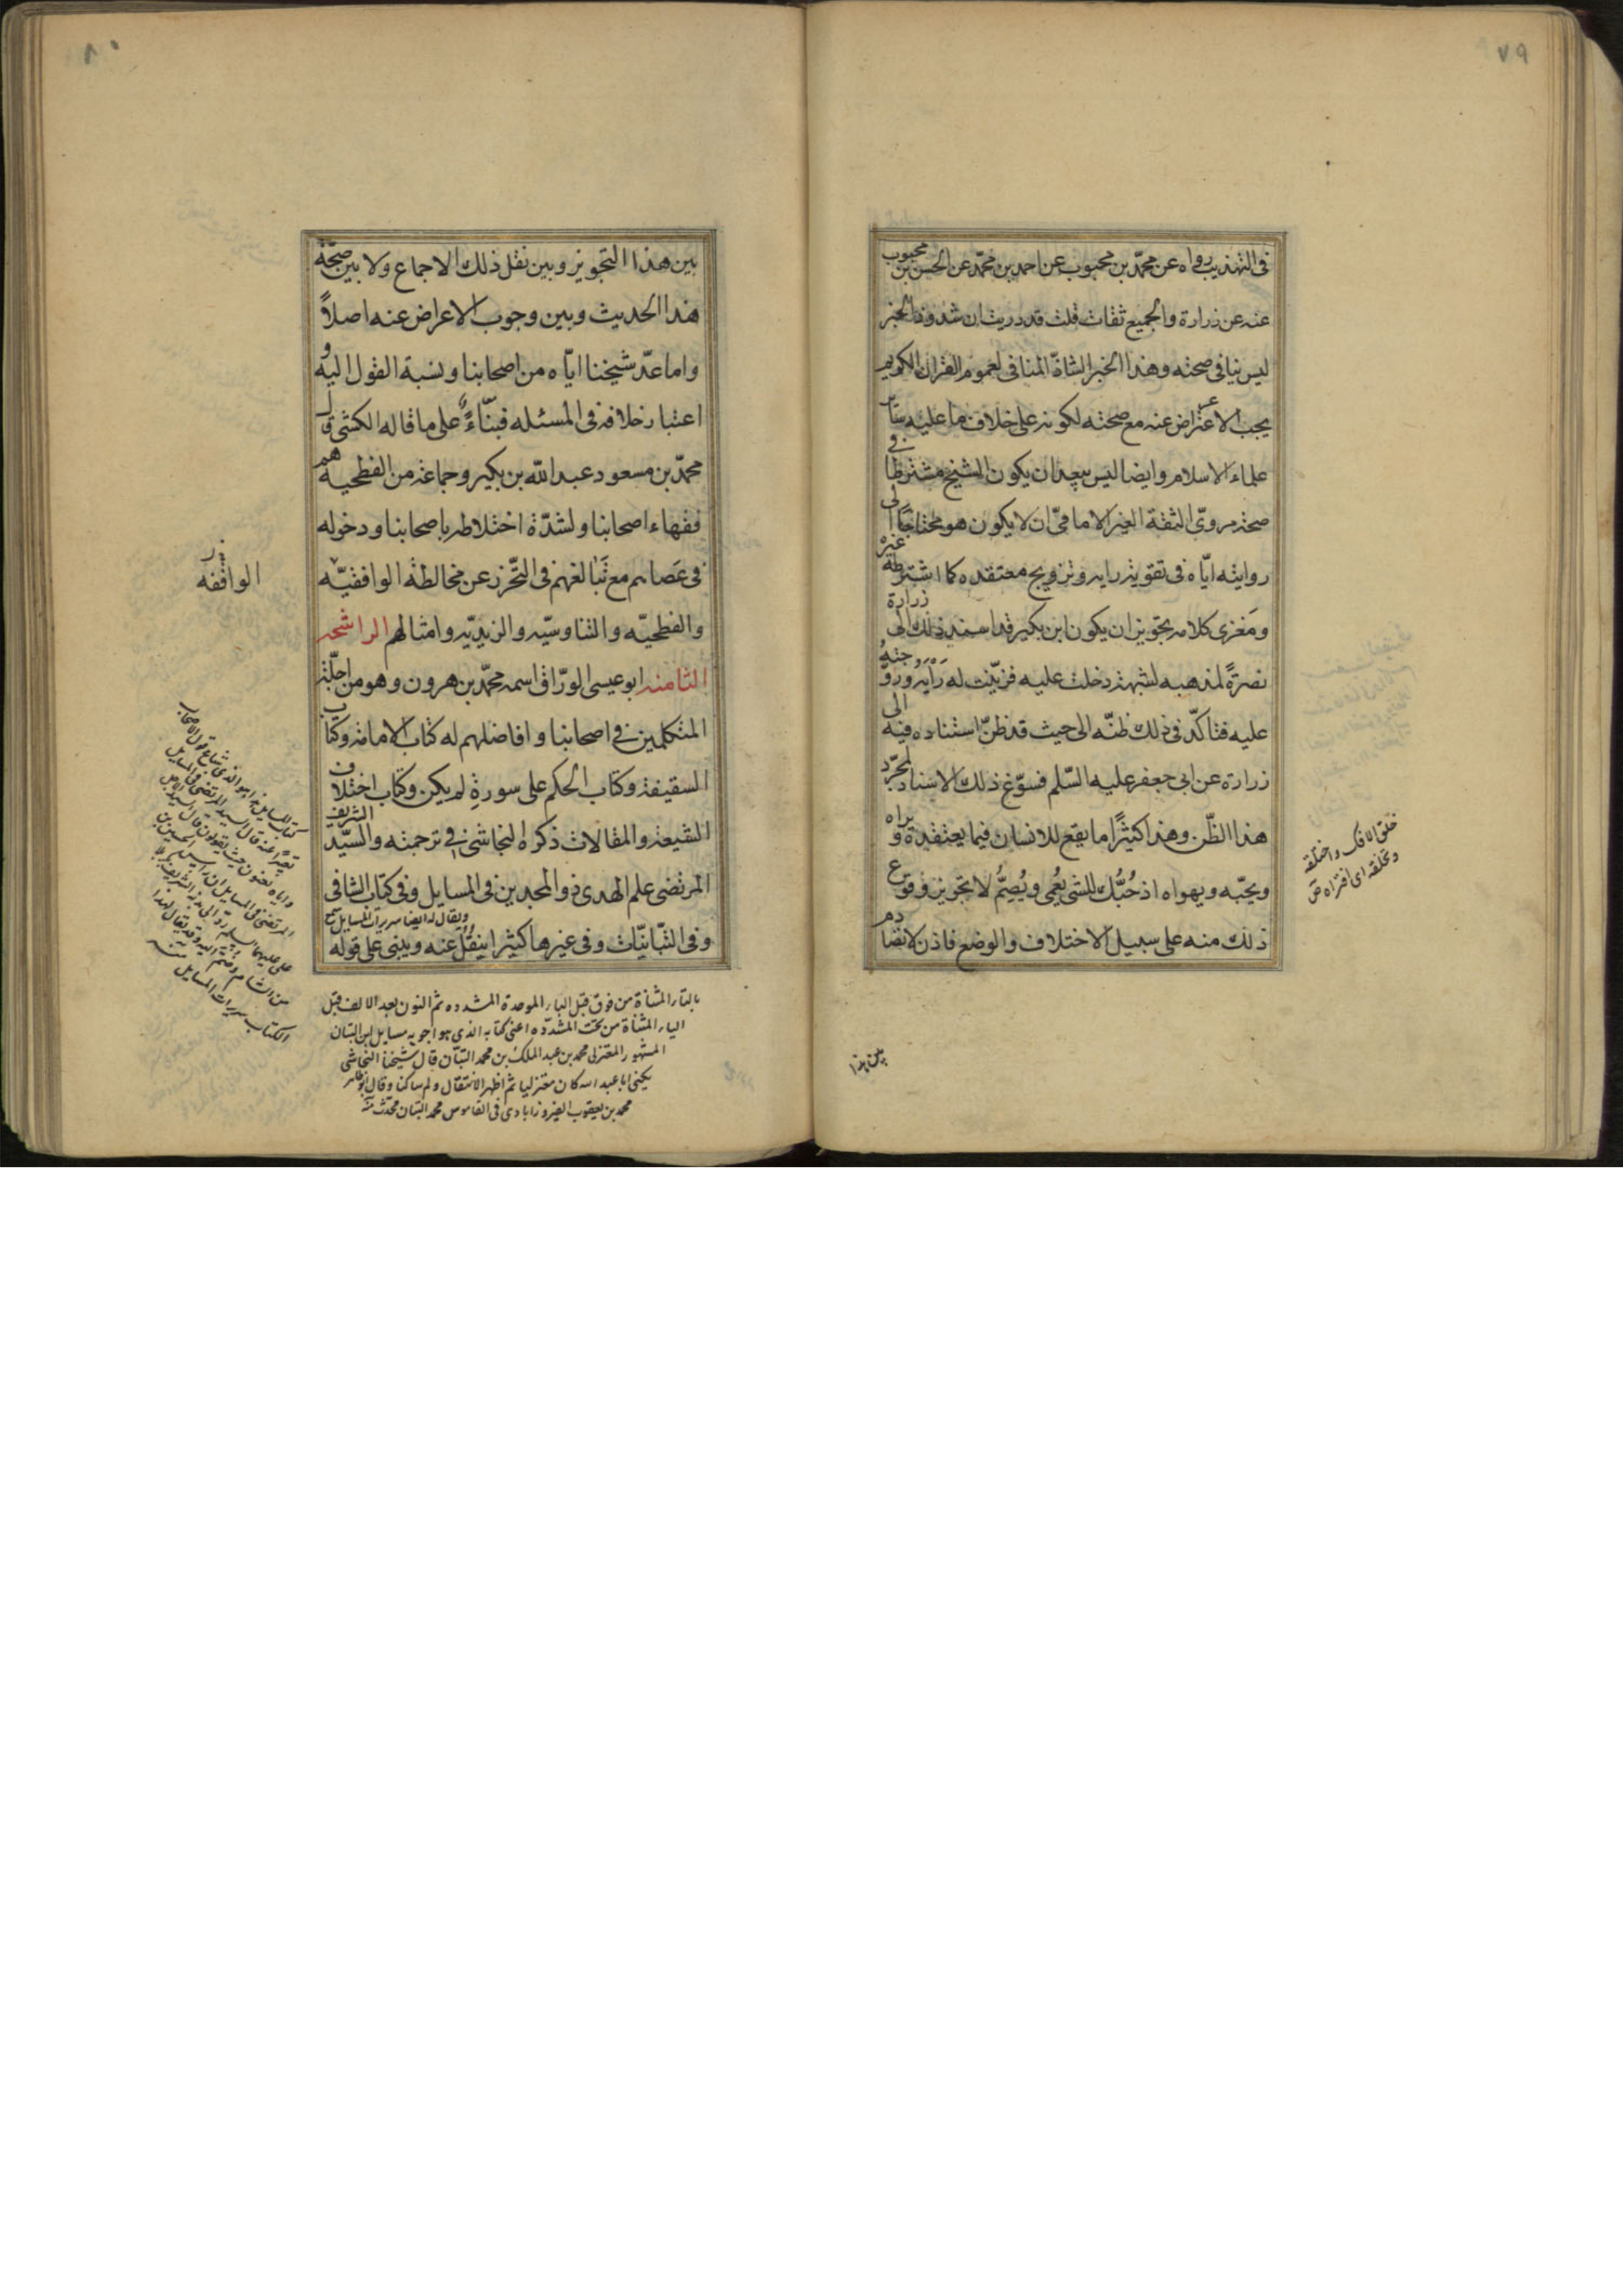 ٧٩
في التهذيب رواه عن محمّد بن محبوب عن احمد بن محمّد عن الحسن بن محبوب
عنه عن زرارة والجميع ثقات قلت قد دريت ان شذوذ الخبر
ليس ينافى صحته وهذا الخبر الشاذّ المنافى لعموم القران الكريم
يجب الاعراض عنه مع صحته لكونه على خلاف ما عليه ساير
علماء الاسلام وايضا ليس ببعيد ان يكون الشيخ مشترطا في
صحة مروىّ الثقة الغير الامامىّ ان لا يكون هو محتاجًا الى
روايته ايّاه فى تقوية رايه وترويج معتقده كما اشترطه غيره
ومَغزى كلامه تجويز ان يكون ابن بكير قد اسند ذلك الى زرارة
نصرةً لمذهبه لشبهة دخلت عليه فزيّنت له رَأيَه وروّجتهُ
عليه فتاكّد فى ذلك ظنّه الى حيث قد ظنّ استناده فيه الى
زرارة عن ابى جعفر عليه السّلم فسوّغ ذلك الاسناد لمجرّد
هذا الظّن وهذا كثيرًا ما يقع للانسان فيما يعتقده ويراه
ويحبّه ويهواه اذ حُبُّك للشئ يُعْمِى ويُصِمُّ لا تجويز وقوع
ذلك منه على سبيل الاختلاف والوضع فاذن لا تصادم
خلق الافك واختلقه
وتخلقه اى افتراه ص
بين هذا
٨٠
بين هذا التجويز وبين نقل ذلك الاجماع ولا بين صحّة
هذا الحديث وبين وجوب الاعراض عنه اصلاً
واما عدّ شيخنا ايّاه من اصحابنا ونسبة القول اليه و
اعتبار خلافه فى المسئله فبناءً على ما قاله الكشى قال
محمّد بن مسعود عبد الله بن بكير وجماعة من الفطحيه هم
فقهاء اصحابنا ولشدّة اختلاطه باصحابنا ودخوله
فى عصابهم مع تبالغهم فى التحّرز عن مخالطة الواقفيّه
والفطحيّه والناوسيّه والزيديّه وامثالهم الراشحه
الثامنه ابو عيسى الورّاق اسمه محمّد بن هرون وهو من اجلّة
المتكلمين فى اصحابنا وافاضلهم له كتاب الامامة وكتاب
السقيفة وكتاب الحكم على سورةِ لم يكن وكتاب اختلاف
الشيعة والمقالات ذكره النجاشى فى ترجمته والسيّد الشريف
المرتضى علم الهدى ذو المجدين فى المسايل وفى كتاب الشافى
ويقال له ايضا سريرات المسايل
وفى التبّانيّات وفى غيرها كثيرا ينقل عنه ويبنى على قوله
الواقفه
بالتاء المثناة من فوق قبل الباء الموحدة المشدده ثم النون بعد الالف قبل
الياء المثناة من تحت المشدّده اعنى كتابه الذى هو اجوبه مسايل ابن التبان
المشهور المعتزلى محمد بن عبد الملك بن محمد التبّان قال شيخنا النجاشى
يكنى ابا عبد الله كان معتزليا ثم اظهر الانتقال ولم يكن ساكنا وقال ابو طاهر
محمد بن يعقوب الفيروزابادى فى القاموس محمد التبان محدّث منه